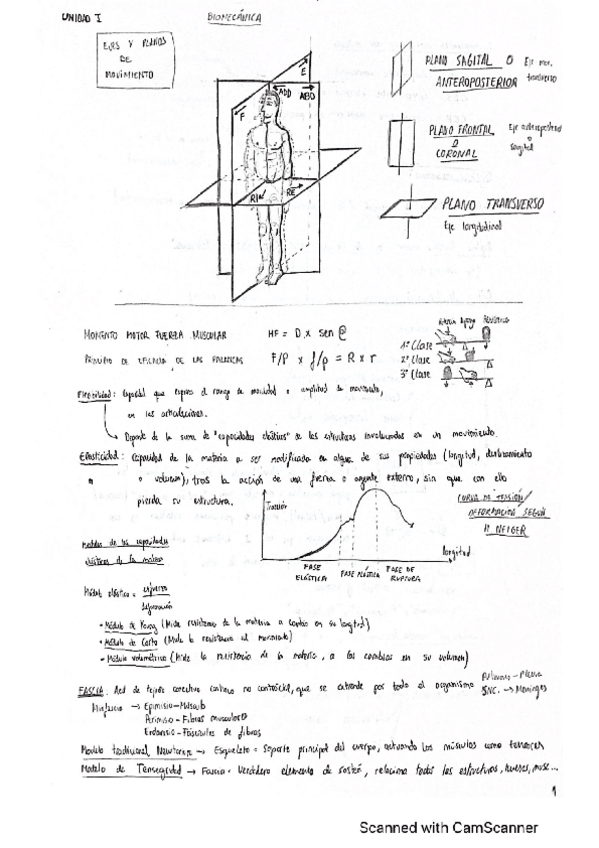 UNIDAD I
BIOMECÁNICA
EJES Y PLANOS
DE
MOVIMIENTO
E
ADD
ABD
F
RI
RE
PLANO SAGITAL O Eje
ANTEROPOSTERIOR transverso
PLANO FRONTAL Eje anteroposterior
O o
CORONAL Sagital
PLANO TRANSVERSO
Eje longitudinal
MOMENTO MOTOR FUERZA MUSCULAR
PRINCIPIO DE EFICACIA DE LAS PALANCAS
F/P x f/p = R x r
Apoyo Resistencia
1ª Clase
2ª Clase
3ª Clase
Flexibilidad: Capacidad que expresa el rango de movilidad o amplitud de movimiento,
en las articulaciones.
Depende de la suma de "capacidades elásticas" de las estructuras involucradas en un movimiento.
Elasticidad: Capacidad de la materia a ser modificada en alguna de sus propiedades (longitud, deslizamiento
o volumen), tras la acción de una fuerza o agente externo, sin que con ello
pierda su estructura.
Tracción
CURVA DE TENSIÓN/
DEFORMACIÓN SEGÚN
H NEIGER
longitud
FASE
ELÁSTICA
FASE PLÁSTICA
FASE DE
RUPTURA
Medidas de las capacidades
elásticas de la materia
Módulo elástico = esfuerzo
deformación
• Módulo de Young (Mide resistencia de la materia a cambio en su longitud)
• Módulo de Corte (Mide la resistencia al movimiento)
• Módulo volumétrico (Mide la resistencia de la materia, a los cambios en su volumen)
FASCIA: Red de tejido conectivo continuo no contráctil, que se extiende por todo el organismo
Pulmones → Pleura
SNC. → Meninges
Miofascia → Epimisio - Músculo
Perimisio - Fibras musculares
Endomisio - Fascículos de fibras
Modelo tradicional Newtoniano → Esqueleto = soporte principal del cuerpo, actuando los músculos como tensores
Modelo de Tensegridad → Fascia = Verdadero elemento de sostén, relaciona todas las estructuras, huesos, musc...
1
Scanned with CamScanner